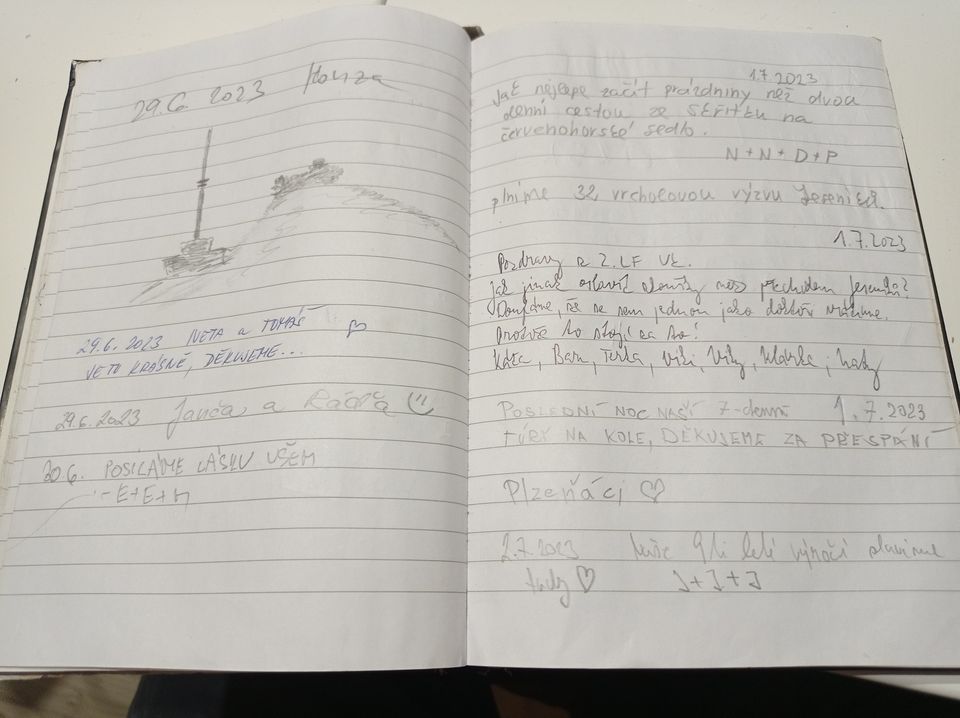 29.6. 2023 Honza
29.6. 2023 IVETA a TOMÁŠ
JE TO KRÁSNÉ, DĚKUJEME...
29.6.2023 Janča a Káča
30.6. POSÍLÁME LÁSKU VŠEM
- E+E+M
1.7.2023
Jak nejlépe začít prázdniny než dvou
denní cestou ze Skřítku na
červenohorské sedlo.
N + N + D + P
plníme 32 vrcholovou výzvu Jeseníků.
1.7.2023
Pozdravy z 2. LF UK.
Jak jinak oslavit zkoušky než přechodem Jeseníků?
Doufáme, že se sem jednou jako doktoři vrátíme.
Protože to stojí za to!
Káťa, Bára, Terka, Viki, Víky, Klárka,
POSLEDNÍ NOC NAŠÍ 7-denní 1.7.2023
TÚRY NA KOLE, DĚKUJEME ZA PŘESPÁNÍ
Plzeňáci ♡
2.7.2023 Naše 9ti leté výročí slavíme
tady ♡ J+J+J